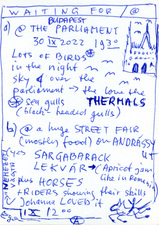 WAITING FOR /@
BUDAPEST
a) @ THE PARLIAMENT
30 IX 2022 1930
LOTS OF BIRDS
in the night
sky over the
parliament → the love the
THERMALS
sea gulls
(black-headed gulls)
b) @ a huge STREET FAIR
(mostly food) on ANDRÁSSY
SARGABARACK
LEKVÁR
Apricot jam
like in Romania
plus HORSES
+ RIDERS showing their skills
Johanna LOVED it
1 IX 1200